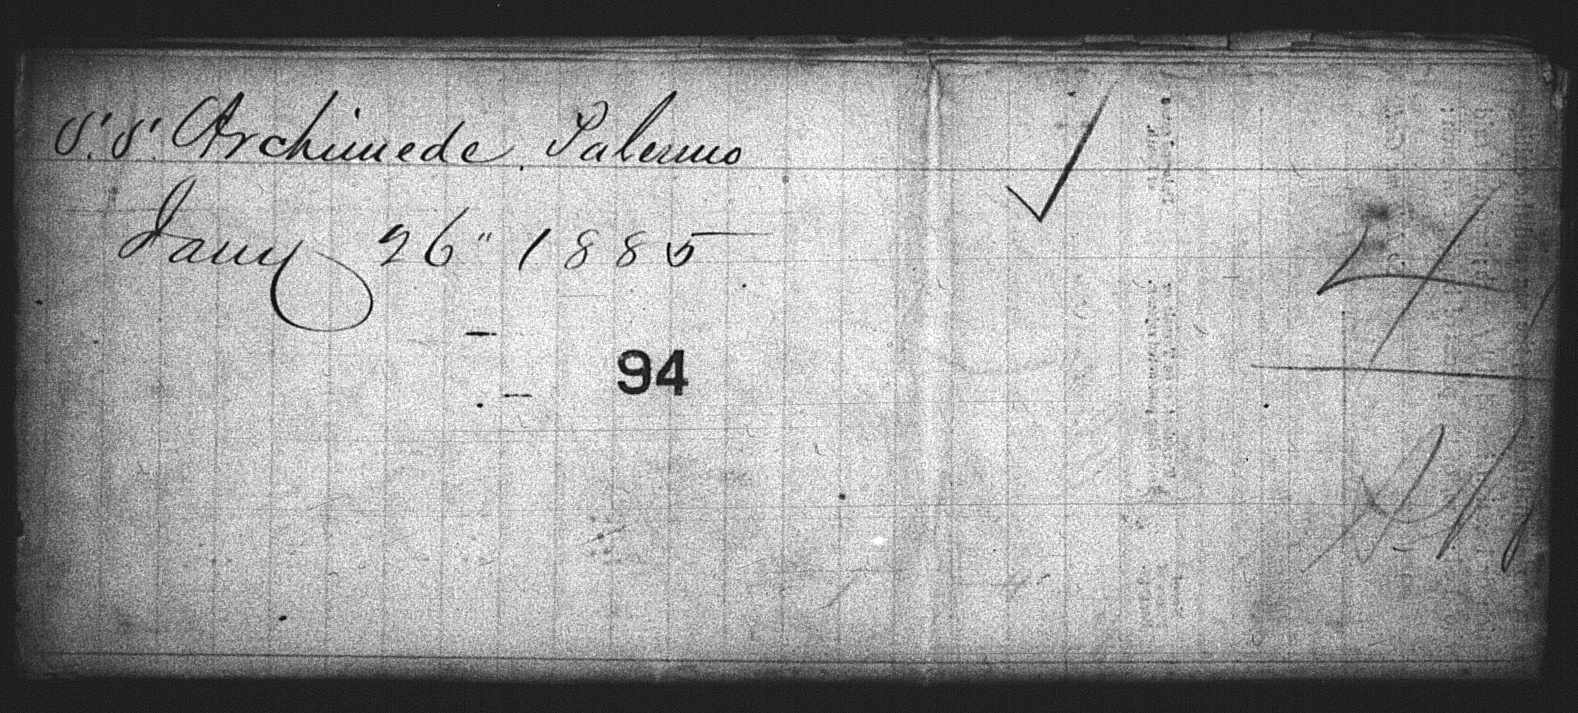 S.S. Archimede. Palermo
Jany 26" 1885
94
4